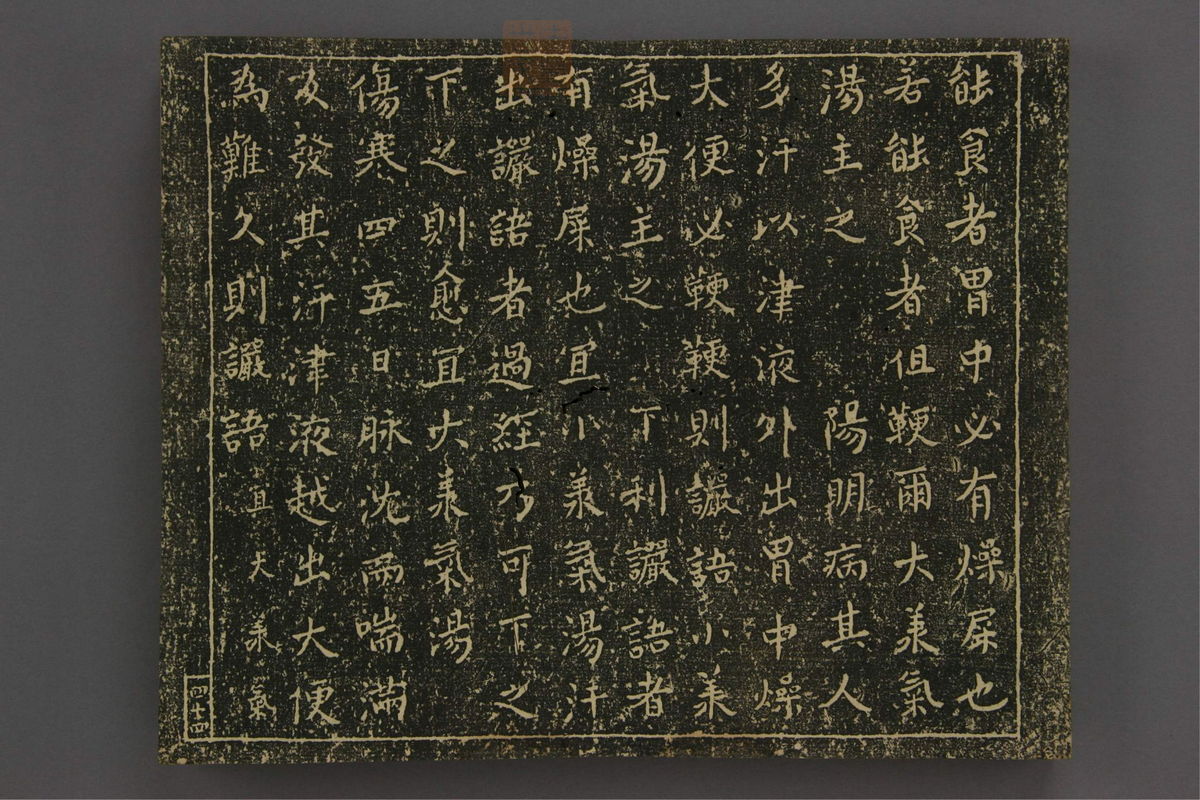 能食者胃中必有燥屎也
若能食者但鞕爾大羕氣
湯主之 陽明病其人
多汗以津液外出胃中燥
大便必鞕鞕則讝語小羕
氣湯主之 下利讝語者
有燥屎也宜小羕氣湯汗
出讝語者過經乃可下之
下之則愈宜大羕氣湯
傷寒四五日脉沈而喘滿
反發其汗津液越出大便
為難久則讝語宜大羕氣
四十四